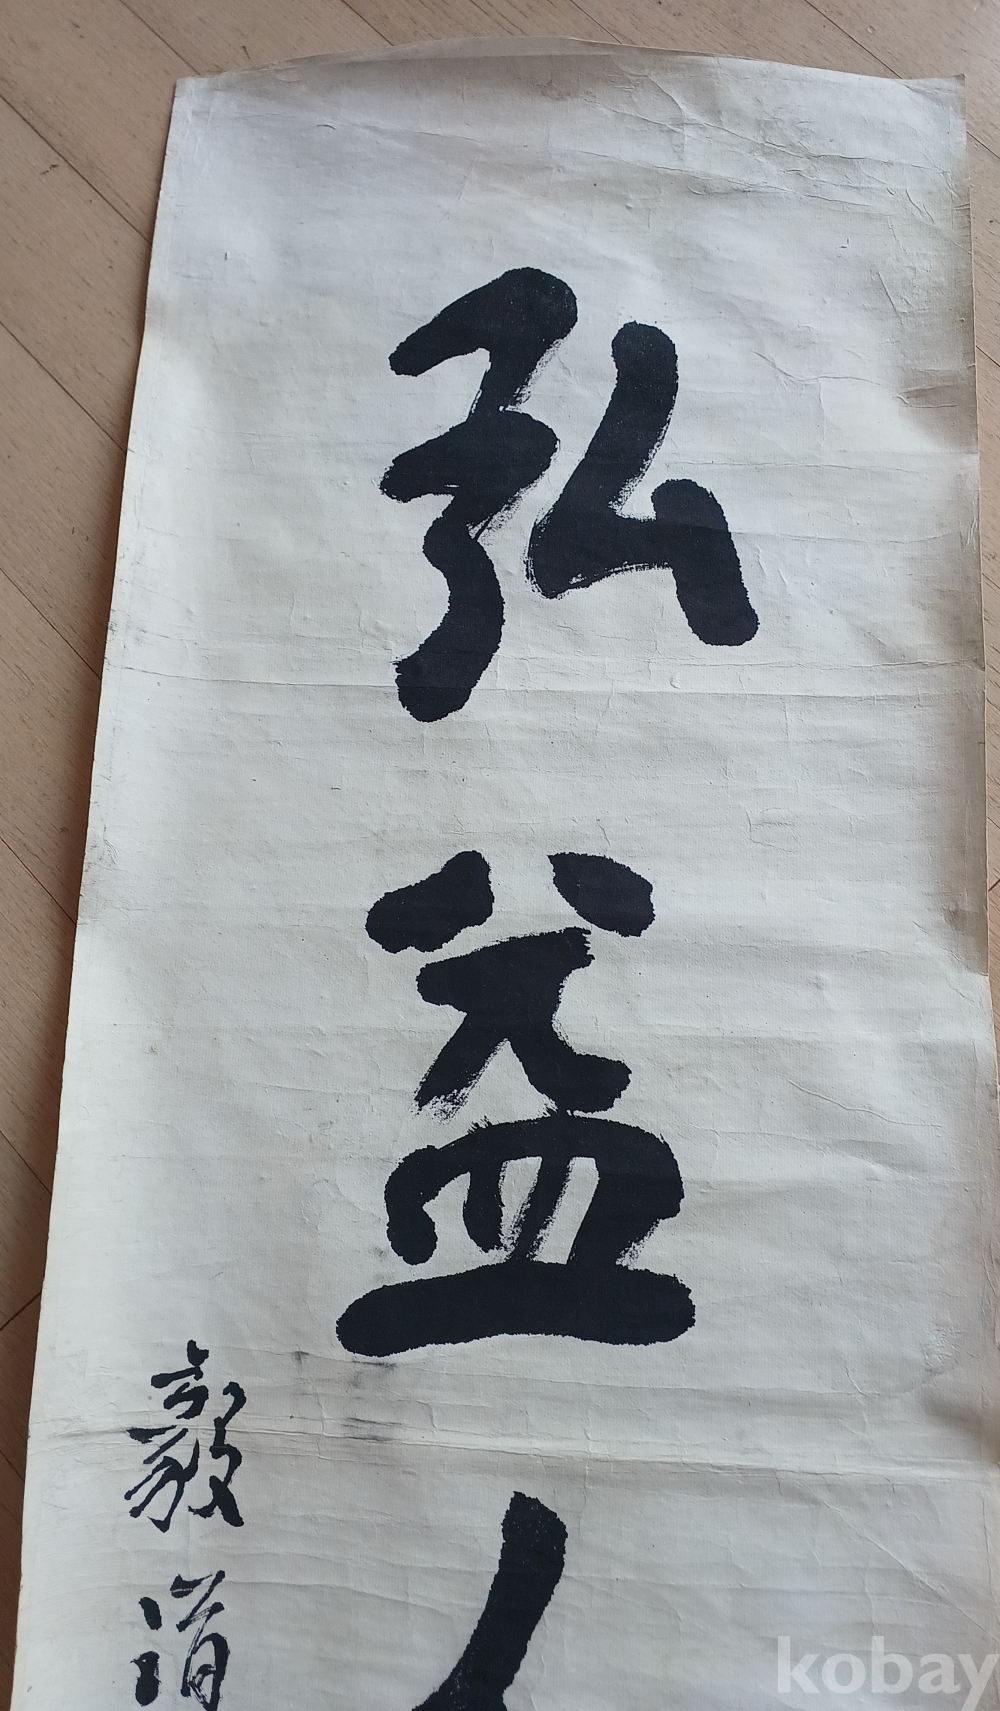 弘益人
毅道
kobay